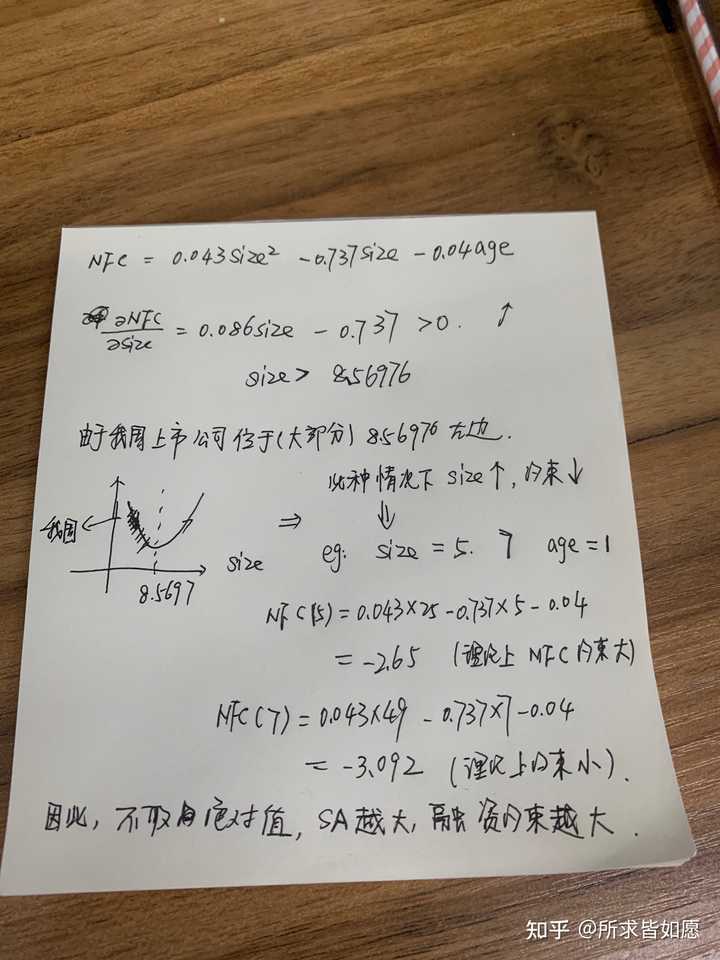 NFC = 0.043size² - 0.737size - 0.04age
∂NFC/∂size = 0.086size - 0.737 > 0. ↑
size > 8.56976
由于我国上市公司位于(大部分) 8.56976 左边.
此种情况下 size↑, 约束↓
我国
size
8.5697
⇒ eg: size = 5. 7 age = 1
NFC(5) = 0.043×25 - 0.737×5 - 0.04
= -2.65 (理论上 NFC 约束大)
NFC(7) = 0.043×49 - 0.737×7 - 0.04
= -3.092 (理论上约束小).
因此, 不取绝对值, SA越大, 融资约束越大.
知乎 @所求皆如愿